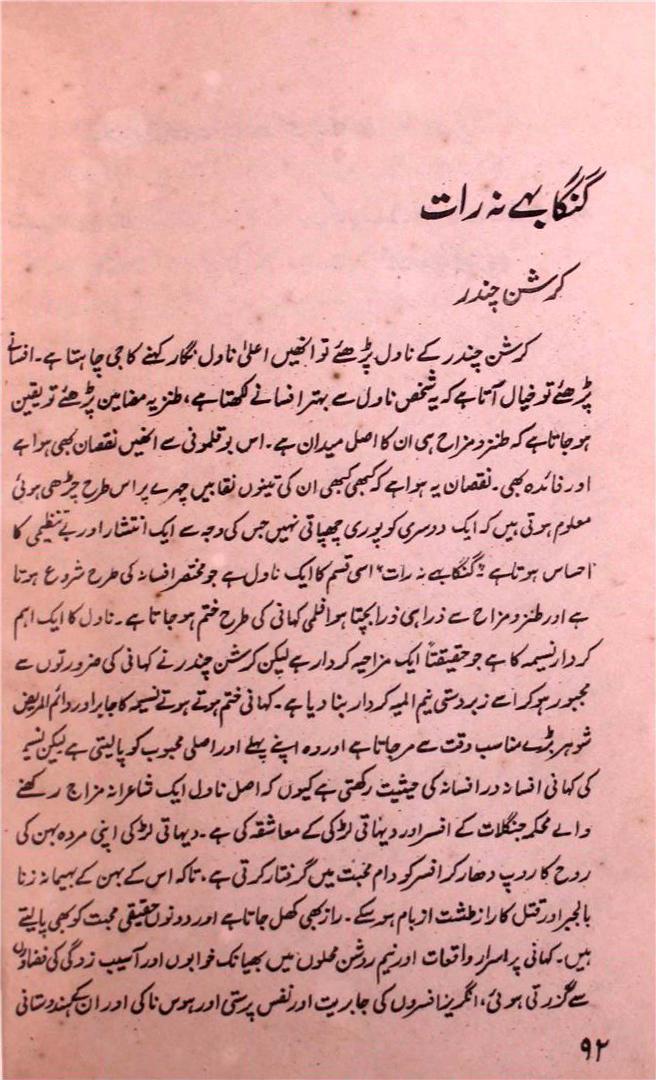 گنگا بہے نہ رات
کرشن چندر
کرشن چندر کے ناول پڑھئے تو انھیں اعلیٰ ناول نگار کہنے کا جی چاہتا ہے۔ افسانے
پڑھئے تو خیال آتا ہے کہ یہ شخص ناول سے بہتر افسانے لکھتا ہے، طنزیہ مضامین پڑھئے تو یقین
ہو جاتا ہے کہ طنز و مزاح ہی ان کا اصل میدان ہے۔ اس بوقلمونی سے انھیں نقصان بھی ہوا ہے
اور فائدہ بھی۔ نقصان یہ ہوا ہے کہ کبھی کبھی ان کی تینوں نقابیں چہرے پر اس طرح چڑھی ہوئی
معلوم ہوتی ہیں کہ ایک دوسری کو پوری چھپاتی نہیں جس کی وجہ سے ایک انتشار اور بے تنظیمی کا
احساس ہوتا ہے "گنگا بہے نہ رات" اسی قسم کا ایک ناول ہے جو مختصر افسانہ کی طرح شروع ہوتا
ہے اور طنز و مزاح سے ذرا ہی ذرا بچتا ہوا فلمی کہانی کی طرح ختم ہو جاتا ہے۔ ناول کا ایک اہم
کردار نسیمہ کا ہے جو حقیقتاً ایک مزاحیہ کردار ہے لیکن کرشن چندر نے کہانی کی ضرورتوں سے
مجبور ہو کر اسے زبردستی نیم المیہ کردار بنا دیا ہے۔ کہانی ختم ہوتے ہوتے نسیمہ کا جابر اور دائم المریض
شوہر بڑے مناسب وقت سے مر جاتا ہے اور وہ اپنے پہلے اور اصلی محبوب کو پا لیتی ہے لیکن نسیمہ
کی کہانی افسانہ در افسانہ کی حیثیت رکھتی ہے کیوں کہ اصل ناول ایک شاعرانہ مزاج رکھنے
والے محکمہ جنگلات کے افسر اور دیہاتی لڑکی کے معاشقہ کی ہے۔ دیہاتی لڑکی اپنی مردہ بہن کی
روح کا روپ دھار کر افسر کو دام محبت میں گرفتار کرتی ہے، تاکہ اس کے بہن کے بہیمانہ زنا
بالجبر اور قتل کا راز طشت از بام ہو سکے۔ راز بھی کھل جاتا ہے اور دونوں حقیقی محبت کو بھی پا لیتے
ہیں۔ کہانی پر اسرار واقعات اور نیم روشن محلوں میں بھیانک خوابوں اور آسیب زدگی کی فضاؤں
سے گزرتی ہوئی، انگریز افسروں کی جابریت اور نفس پرستی اور ہوس ناکی اور ان کے ہندوستانی
۹۲